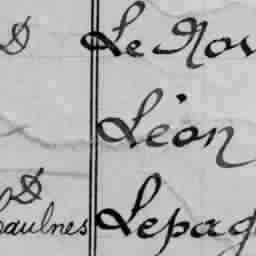 D Le Nov
Léon
D
aulnes Lepag